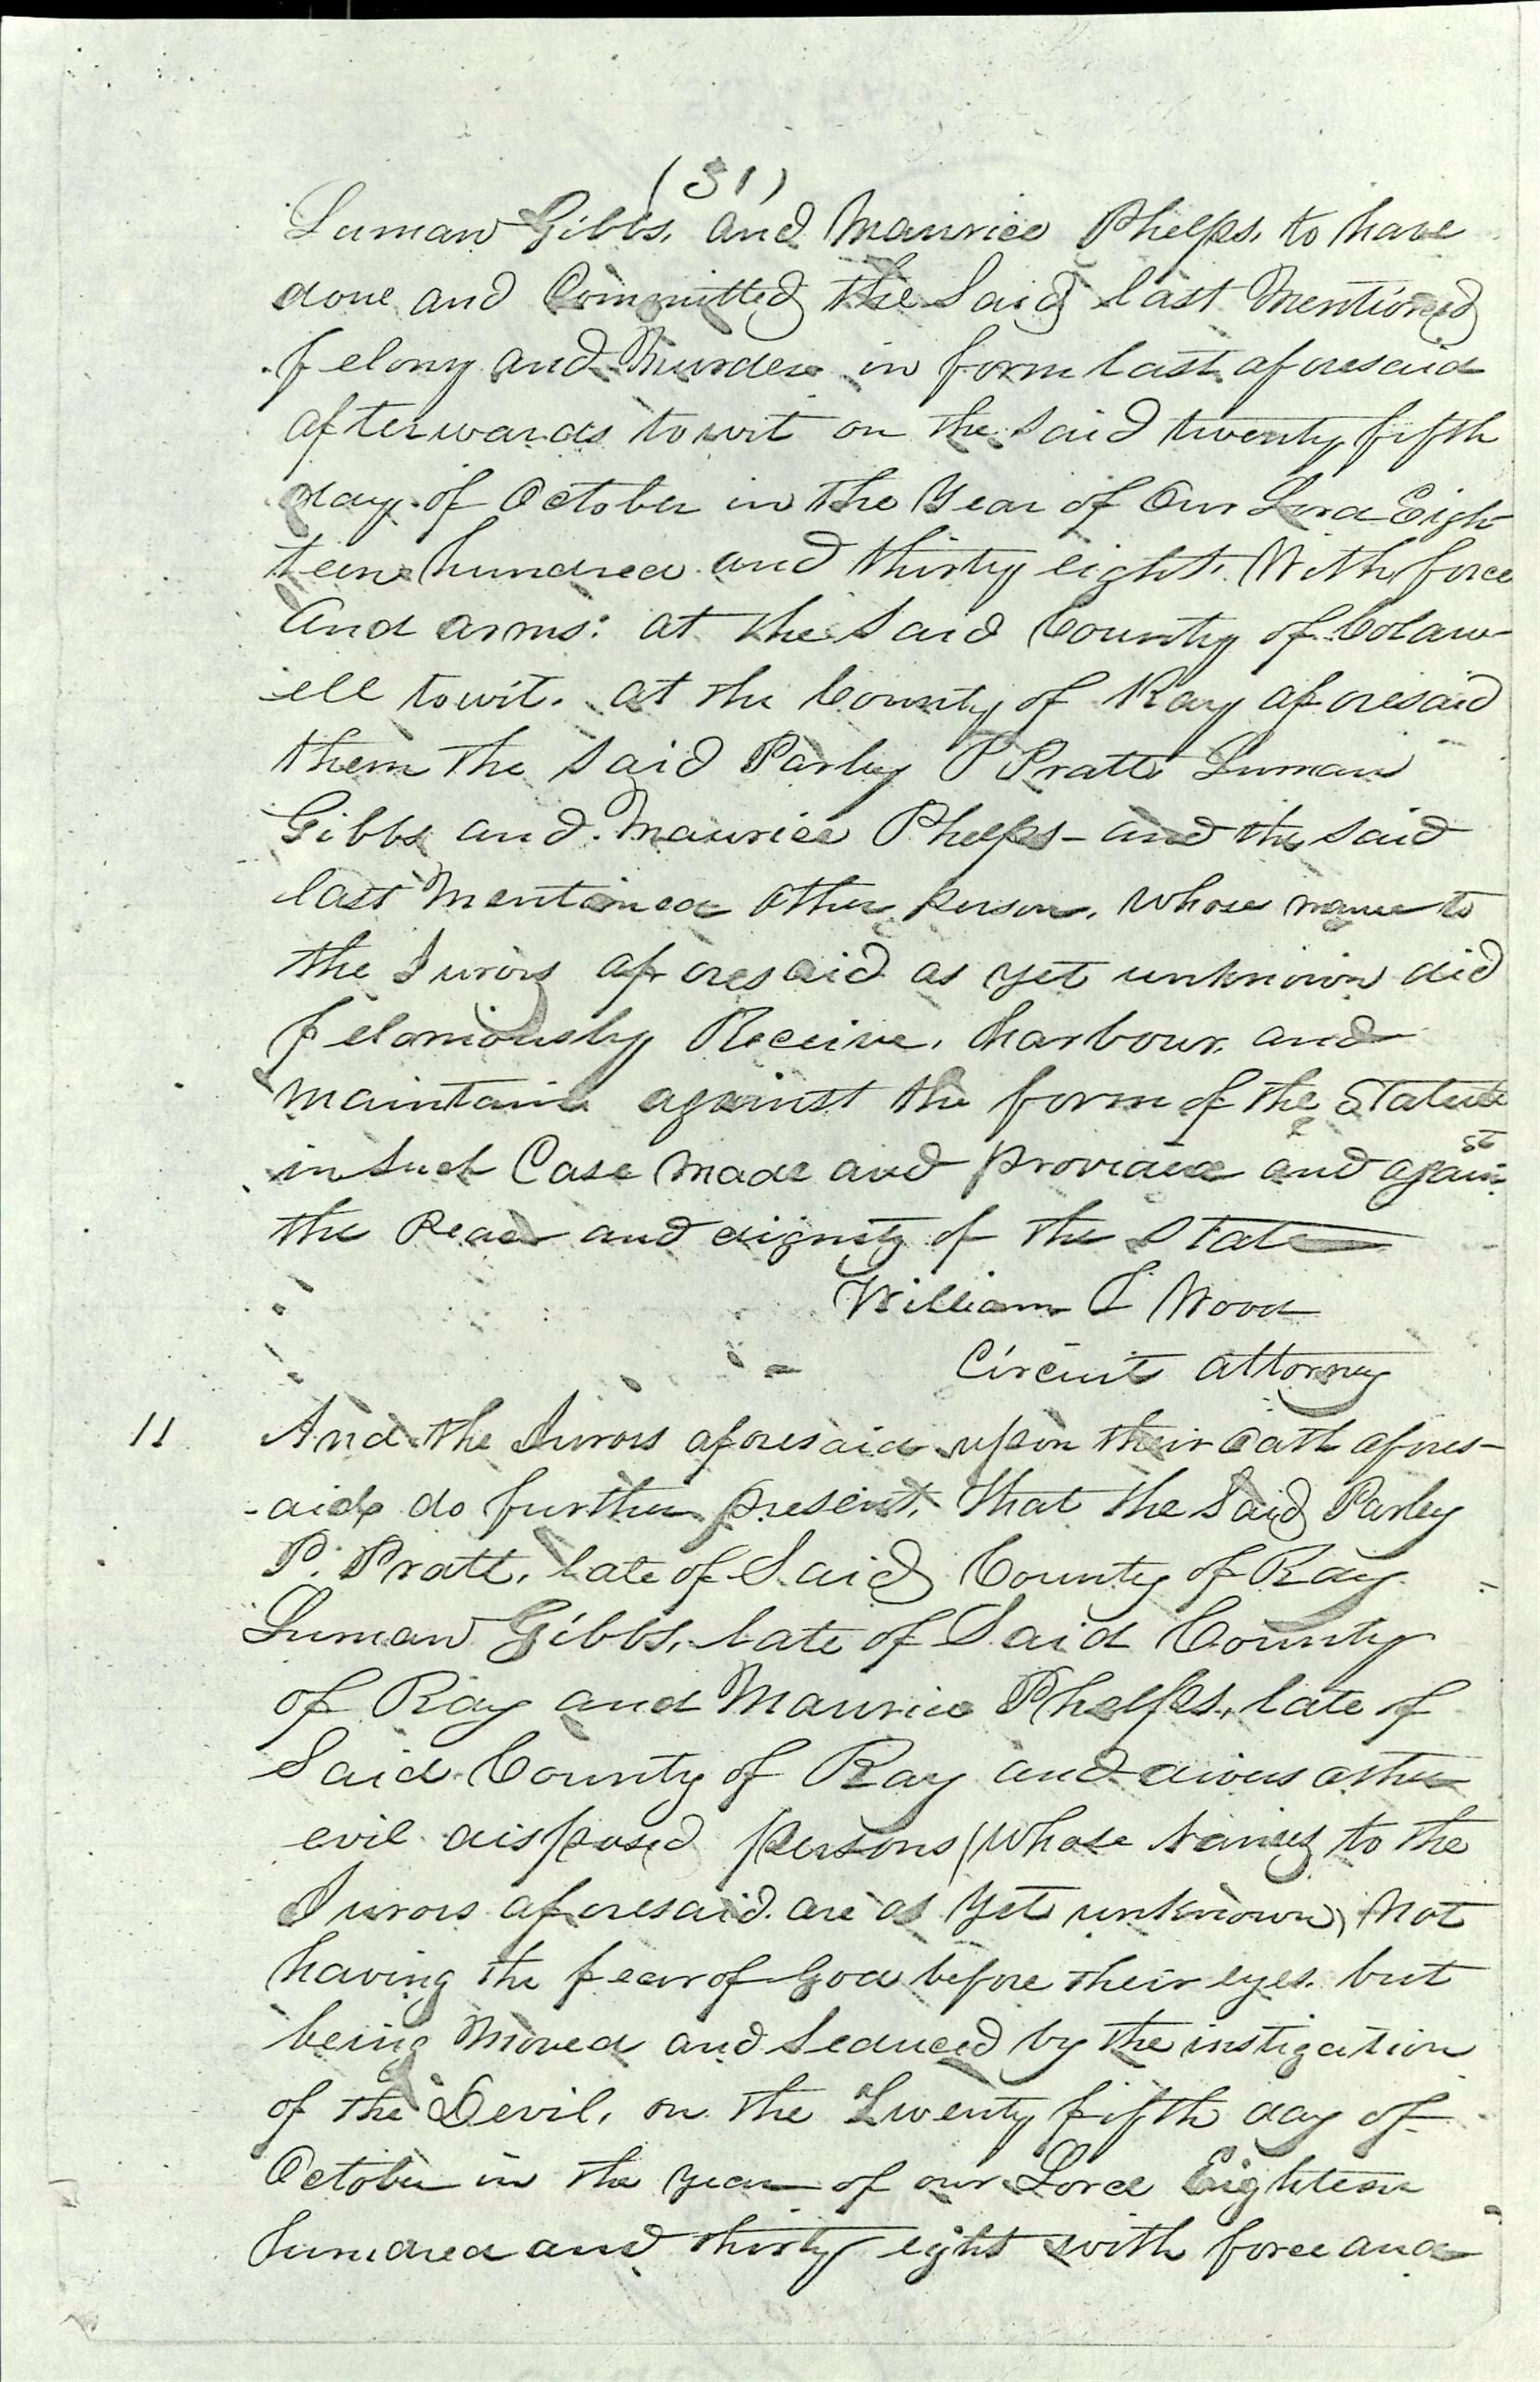 (31)
Luman Gibbs, and Maurice Phelps, to have
done and Committed the Said last Mentioned
felony and Murder in form last aforesaid
afterwards towit on the said twenty fifth
day of October in the Year of Our Lord Eigh
teen hundred and thirty eight. With force
And arms: at the Said County of Coldw-
ell towit. at the County of Ray aforesaid
them the said Parley P Pratt Luman
Gibbs and Maurice Phelps - and the said
last Mentioned other person, whose name to
the Jurors aforesaid as yet unknown did
feloniously Receive, harbour, and
Maintain against the form of the Statute
in Such Case Made and provided and against
the Peace and dignity of the State
William T Wood
Circuit attorney
11 And the Jurors aforesaid upon their Oath afores-
-aid do further present, that the Said Parley
P. Pratt, late of Said County of Ray
Luman Gibbs, late of Said County
of Ray and Maurice Phelps, late of
Said County of Ray and divers other
evil disposed persons (Whose Names to the
Jurors aforesaid are as Yet unknown) Not
having the fear of God before their eyes. but
being Moved and Seduced by the instigation
of the Devil, on the Twenty fifth day of
October in the year of our Lord Eighteen
hundred and thirty eight with force and